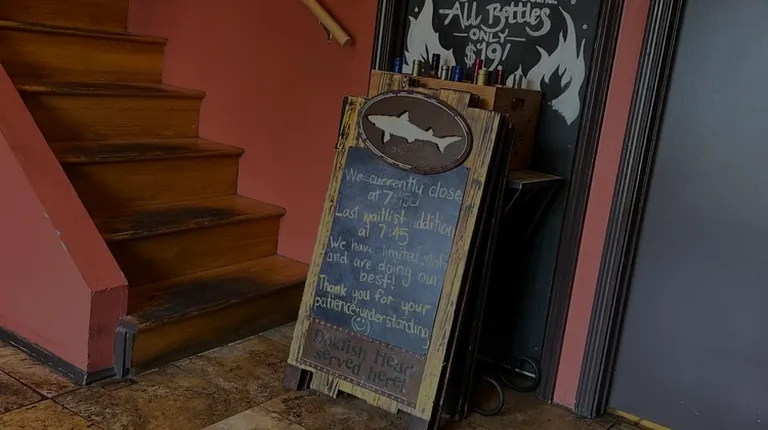 All Bottles
ONLY
$19!
We currently close
at 7:
Last waitlist addition
at 7:45
We have limited staff
and are doing our
best!
Thank you for your
patience + understanding
Dogfish Head
served here!